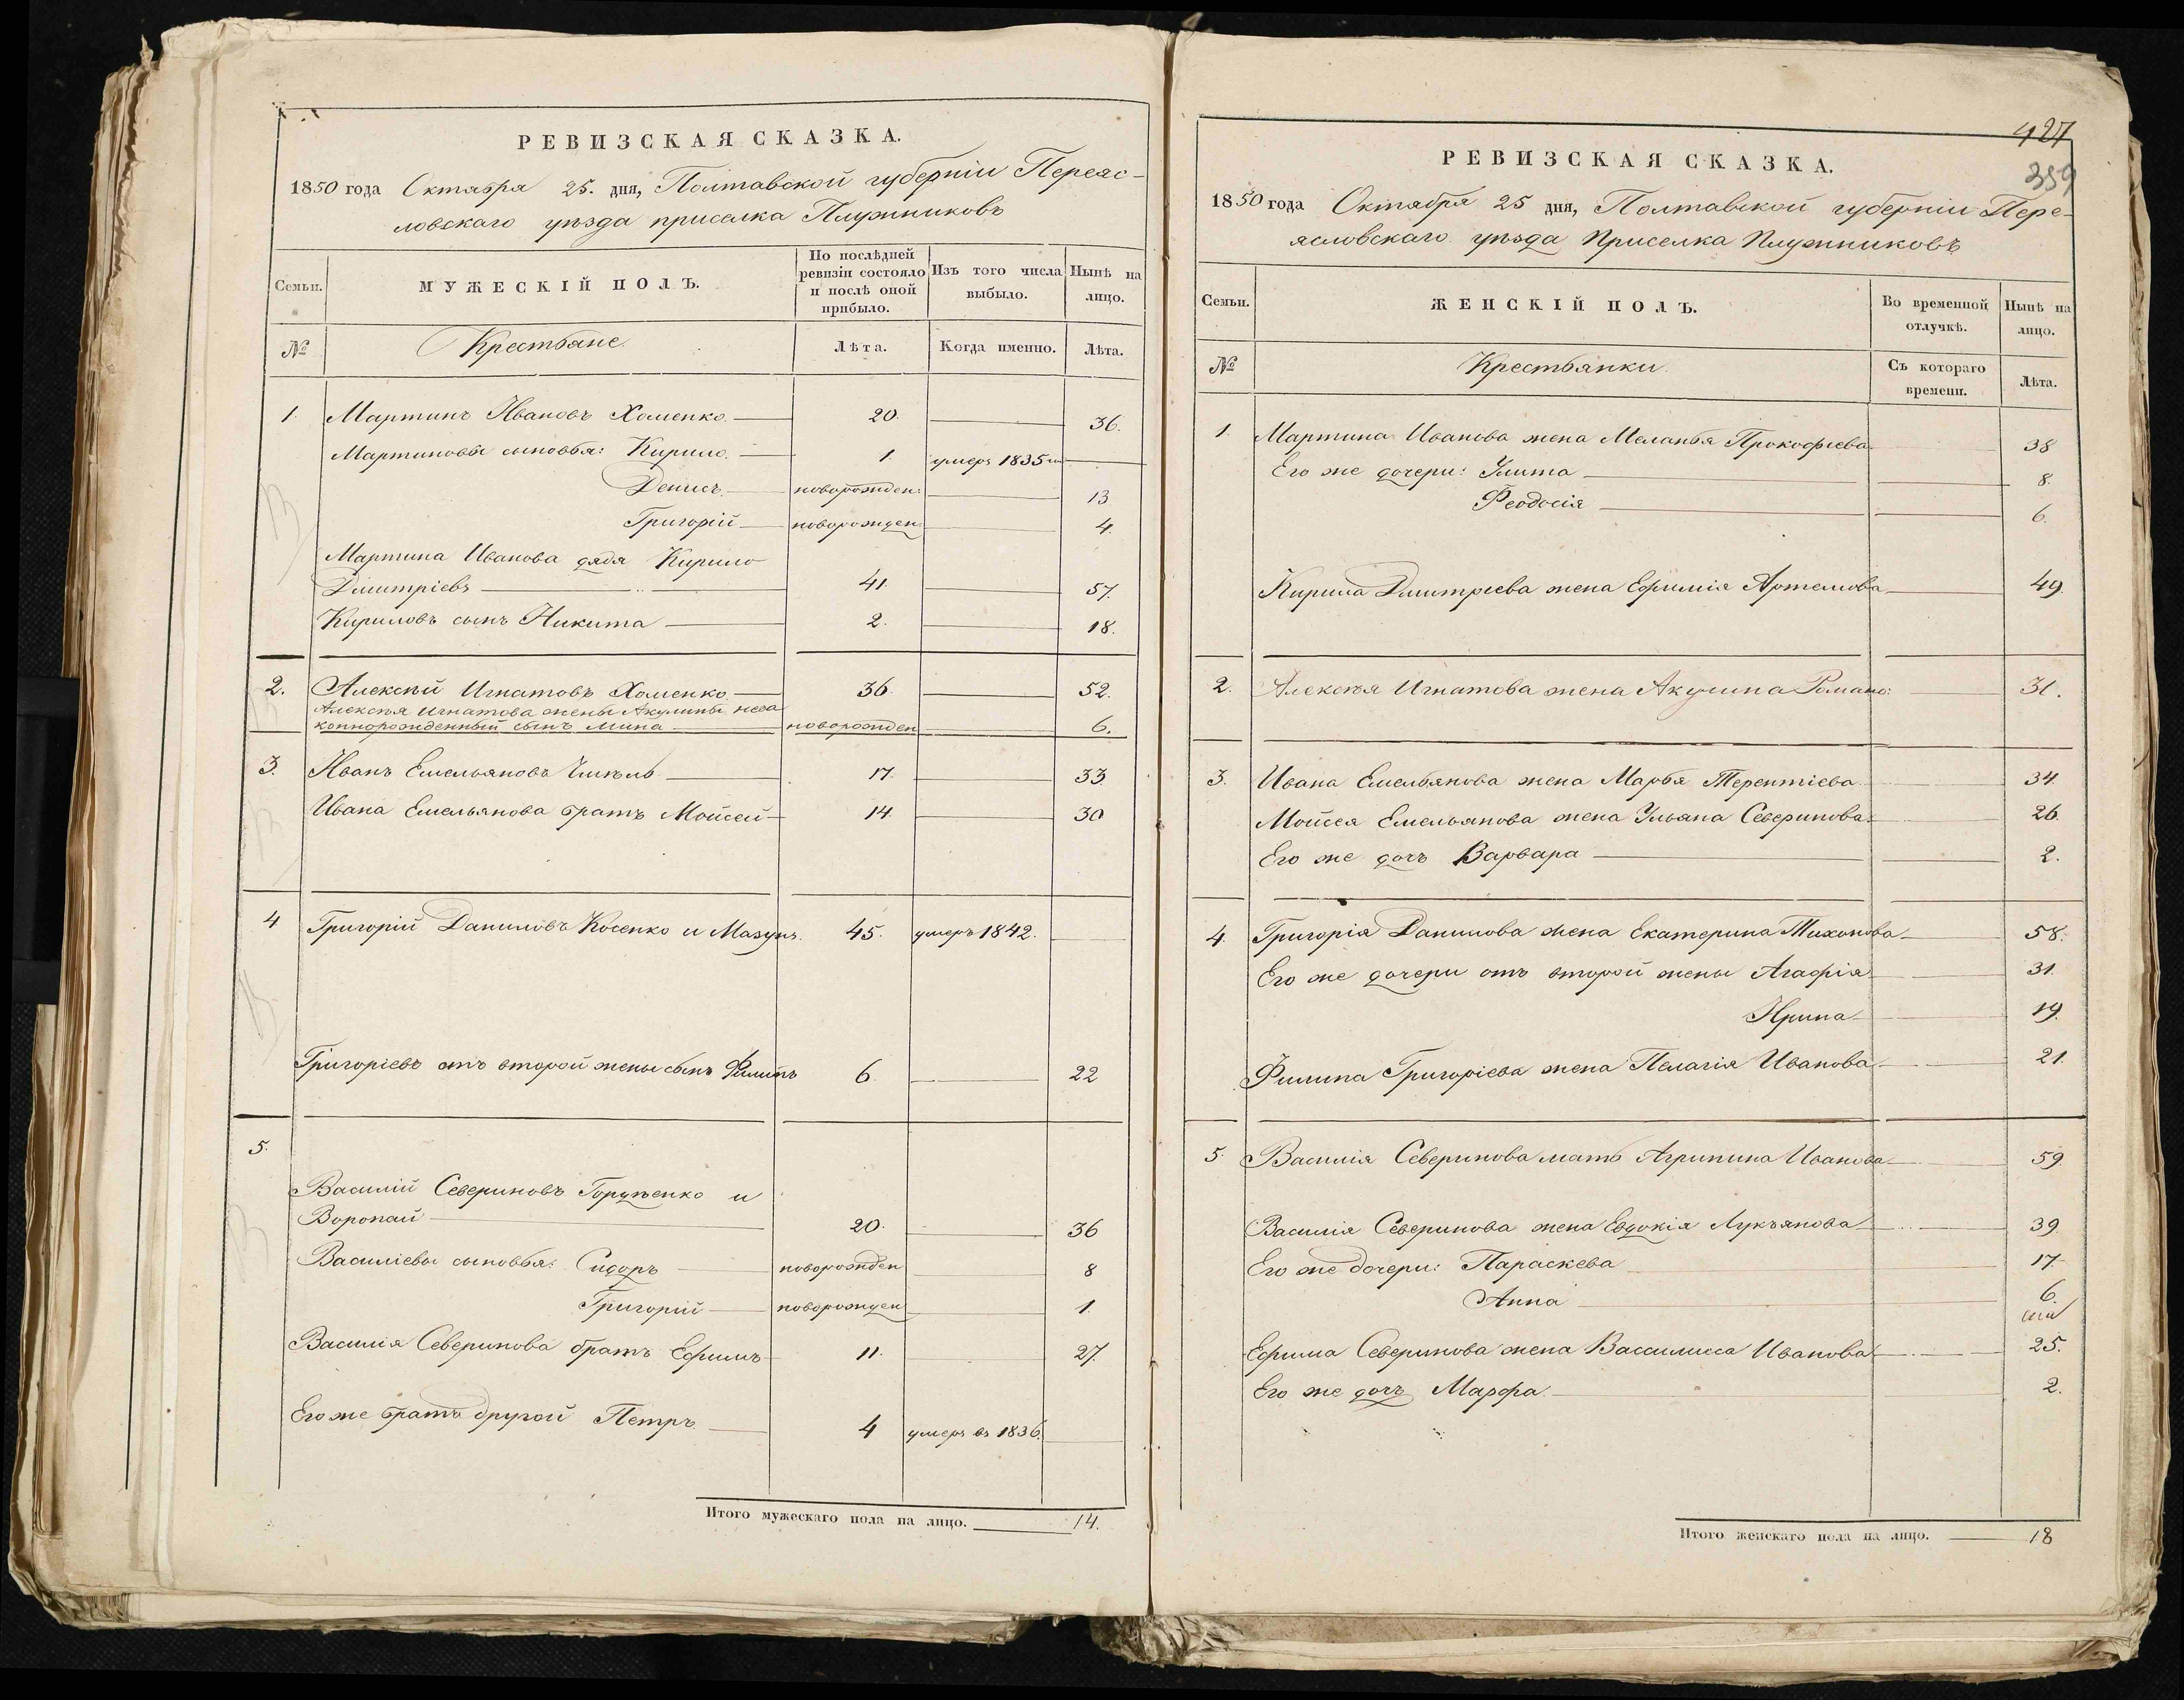 РЕВИЗСКАЯ СКАЗКА.
1850 года Октября 25. дня, Полтавской губерніи Переяс-
ловскаго уѣзда приселка Плужниковъ
Семьи.
МУЖЕСКІЙ ПОЛЪ.
По послѣдней ревизіи состояло и послѣ оной прибыло.
Изъ того числа выбыло.
Нынѣ на лицо.
№
Крестьяне
Лѣта.
Когда именно.
Лѣта.
1. Мартинъ Ивановъ Хоменко 20. 36.
Мартиновы сыновья: Кирило 1. умеръ 1835
Денисъ новорожден: 13
Григорій новорожден 4.
Мартина Иванова дядя Кирило
Дмитріевъ 41. 57.
Кириловъ сынъ Никита 2. 18.
2. Алексѣй Игнатовъ Хоменко 36. 52.
Алексѣя Игнатова жены Акулины неза
коннорожденный сынъ Мина новорожден 6.
3. Иванъ Емельяновъ 17. 33.
Ивана Емельянова братъ Мойсей 14. 30
4 Григорій Даниловъ Косенко и Мазунъ. 45. умеръ 1842.
Григоріевъ отъ второй жены сынъ Филипъ 6. 22
5.
Василій Севериновъ и
Воропай 20. 36
Василіевы сыновья: Сидоръ новорожден 8
Григорій новорожден 1.
Василія Северинова братъ Ефимъ 11. 27.
Его же братъ другой Петръ 4 умеръ въ 1836.
Итого мужескаго пола на лицо. 14.
427
359
РЕВИЗСКАЯ СКАЗКА.
1850 года Октября 25 дня, Полтавской губерніи Пере-
ясловскаго уѣзда Приселка Плужниковъ
Семьи.
ЖЕНСКІЙ ПОЛЪ.
Во временной отлучкѣ.
Нынѣ на лицо.
№
Крестьянки.
Съ котораго времени.
Лѣта.
1. Мартина Иванова жена Меланья Прокофіева 38
Его же дочери: Улита 8.
Феодосія 6.
Кирила Дмитріева жена Ефимія Артемова 49.
2. Алексѣя Игнатова жена Акулина Романо: 31.
3. Ивана Емельянова жена Марья Терентіева 34.
Мойсея Емельянова жена Ульяна Северинова 26.
Его же дочь Варвара 2.
4. Григорія Данилова жена Екатерина Тихонова 58.
Его же дочери отъ второй жены Агафія 31.
Ирина 19.
Филипа Григоріева жена Пелагія Иванова 21.
5. Василія Северинова мать Агрипина Иванова 59.
Василія Северинова жена Евдокія Лукъянова 39.
Его же дочери: Параскева 17
Анна 6.
Ефима Северинова жена Вассилисса Иванова 25.
Его же дочь Марфа 2.
Итого женскаго пола на лицо. 18